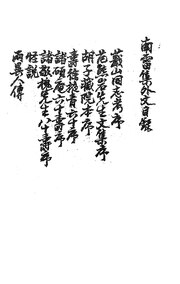 南雷集外文目錄
蕺山同志考序
范熊岩先生文集序
胡子藏院本序
壽徐掖青六十序
諸碩庵六十壽序
諸敬槐先生八十壽序
怪說
兩異人傳